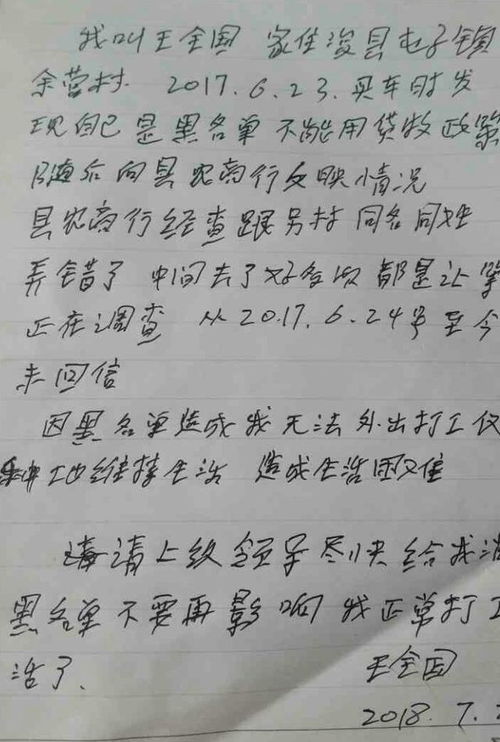 我叫王全国 家住浚县屯子镇
余营村. 2017.6.23.买车时发
现自己是黑名单 不能用贷款政策
随后向县农商行反映情况
县农商行经查跟另村同名同姓
弄错了 中间去了好多次 都是让等
正在调查 从2017.6.24号至今
未回信
因黑名单造成我无法外出打工仅
种地维持生活 造成生活困难
请上级领导尽快给我消
黑名单不要再影响我正常打工
活了.
王全国
2018.7.